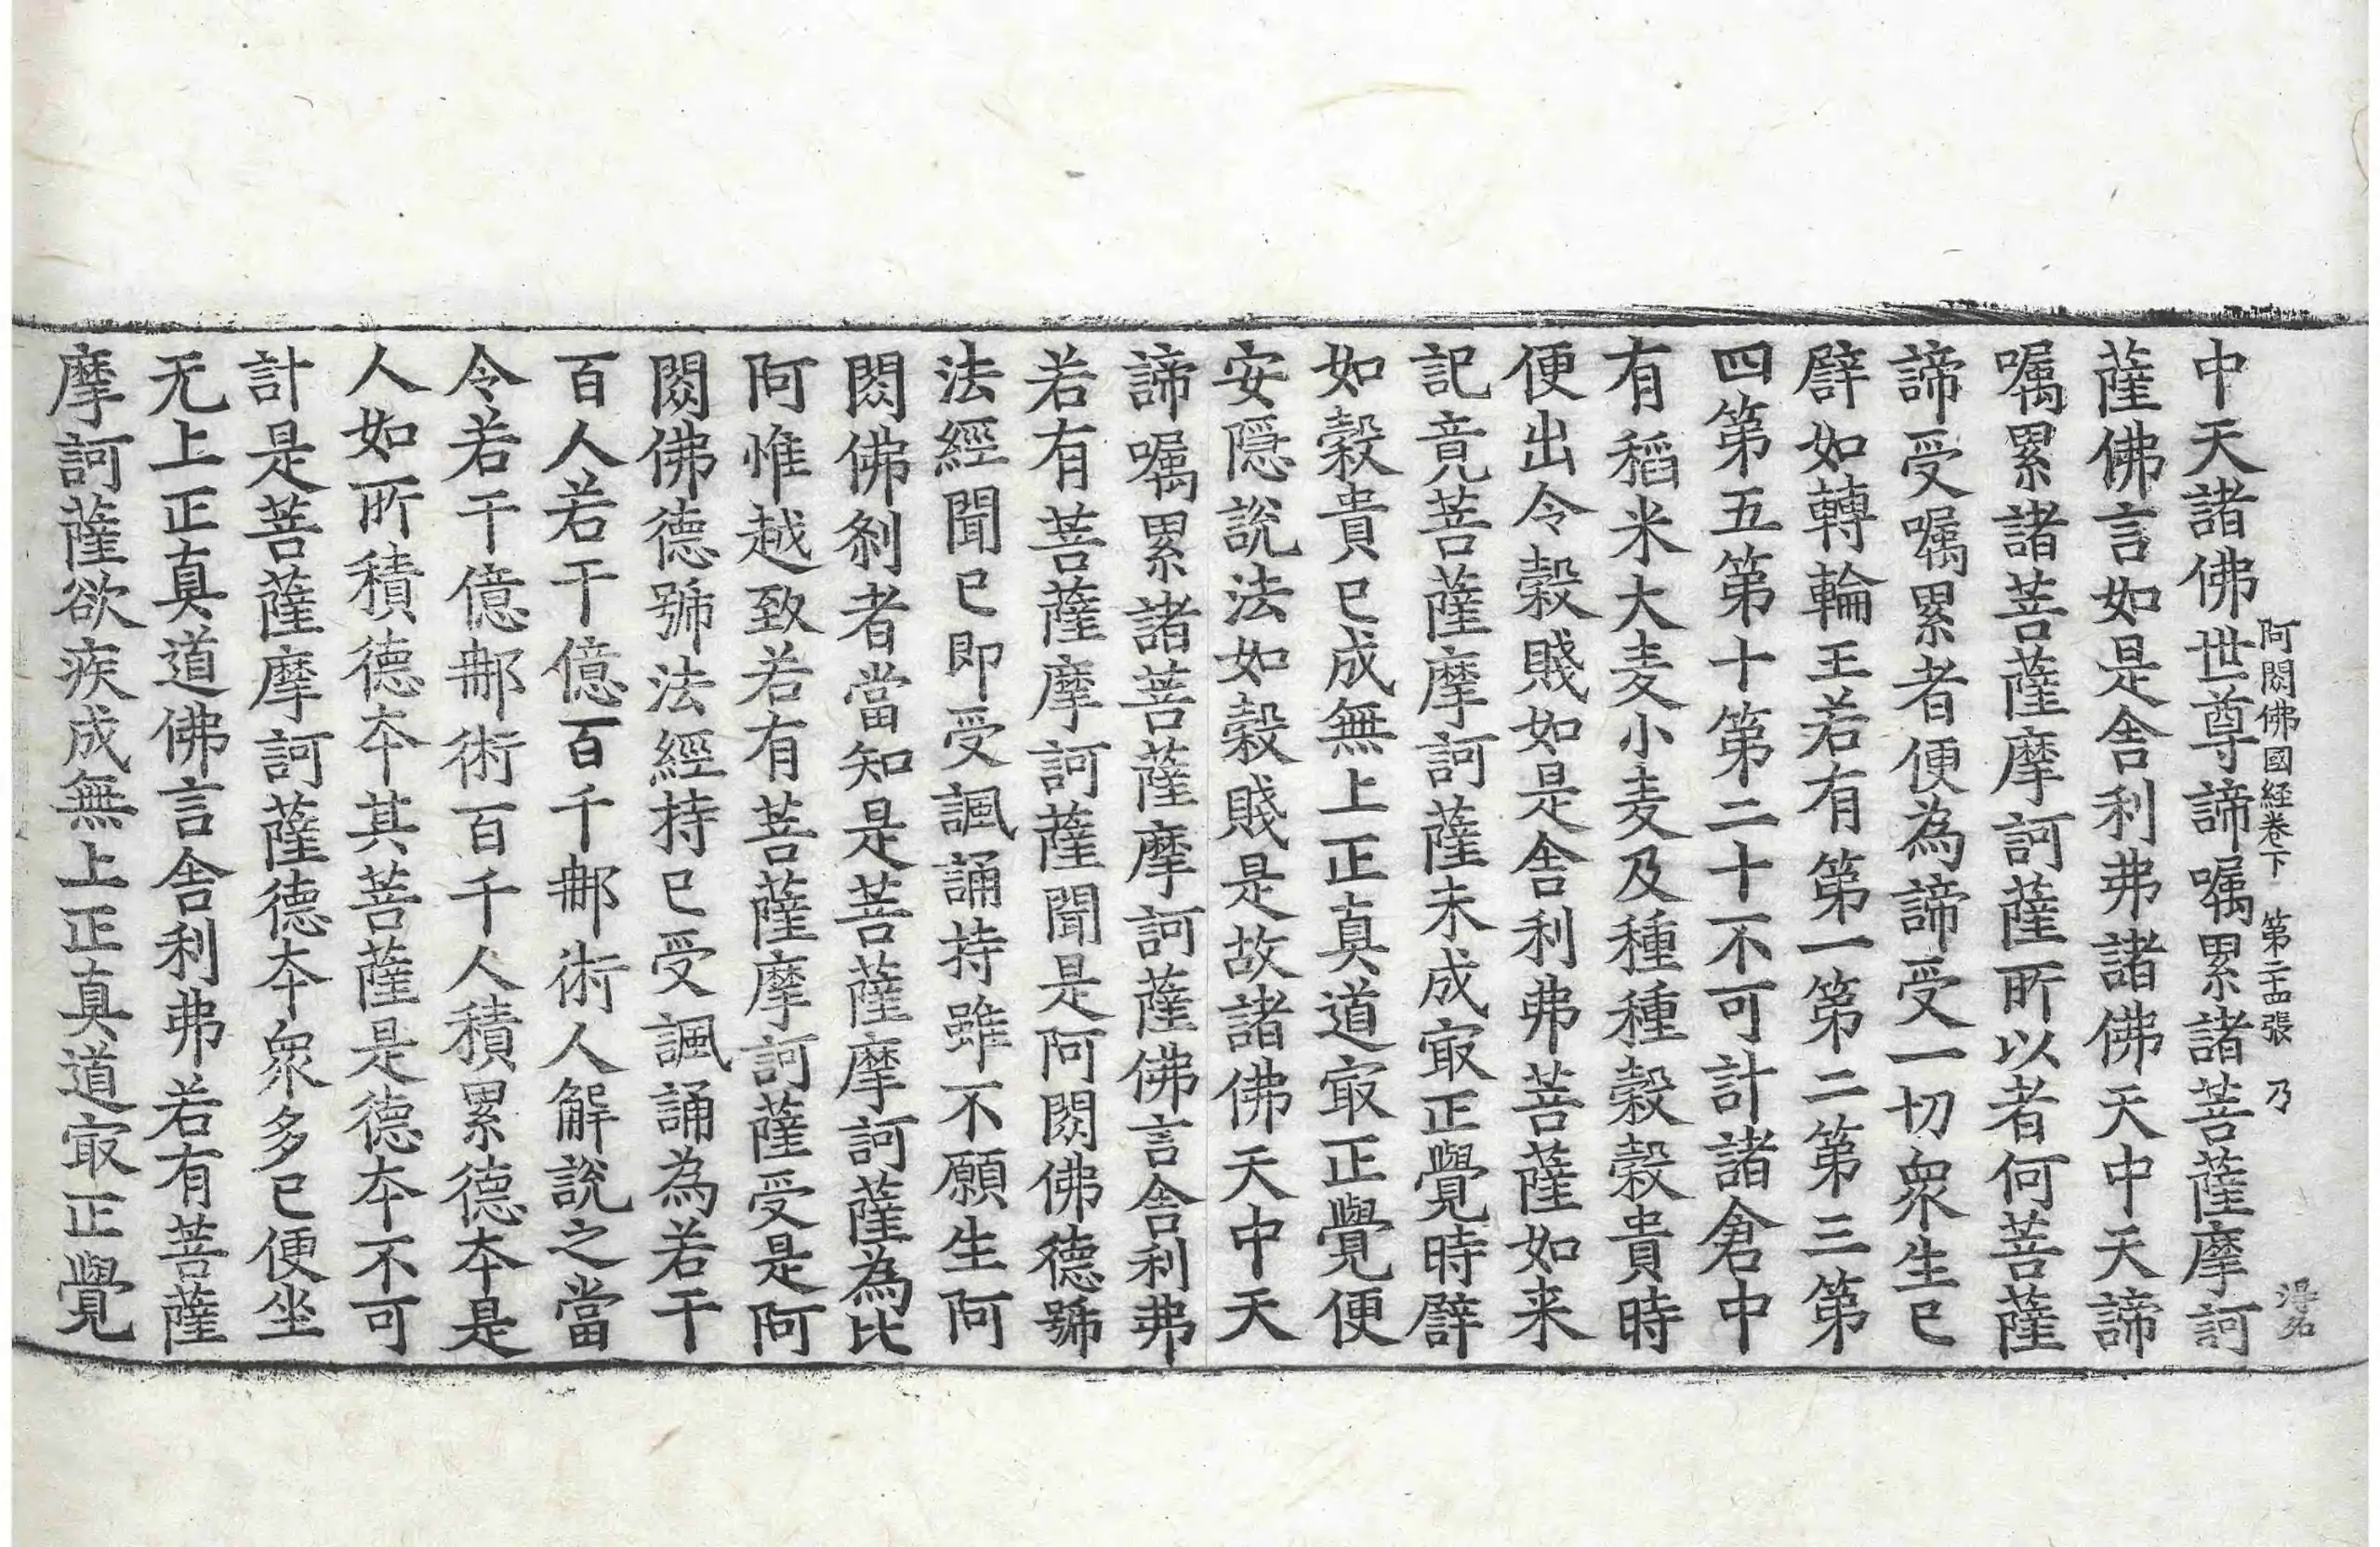 阿閦佛國経卷下　第二十四張　乃
中天諸佛世尊諦嘱累諸菩薩摩訶
薩佛言如是舎利弗諸佛天中天諦
嘱累諸菩薩摩訶薩所以者何菩薩
諦受嘱累者便為諦受一切衆生已
譬如轉輪王若有第一第二第三第
四第五第十第二十不可計諸倉中
有稻米大麦小麦及種種穀穀貴時
便出令穀賤如是舎利弗菩薩如来
記竟菩薩摩訶薩未成㝡正覺時譬
如穀貴已成無上正真道㝡正覺便
安隠說法如穀賤是故諸佛天中天
諦嘱累諸菩薩摩訶薩佛言舎利弗
若有菩薩摩訶薩聞是阿閦佛德號
法經聞已即受諷誦持雖不願生阿
閦佛剎者當知是菩薩摩訶薩為比
阿惟越致若有菩薩摩訶薩受是阿
閦佛德號法經持已受諷誦為若干
百人若干億百千那術人解說之當
令若干億那術百千人積累德夲是
人如所積德夲其菩薩是德夲不可
計是菩薩摩訶薩德夲衆多已便坐
无上正真道佛言舎利弗若有菩薩
摩訶薩欲疾成無上正真道㝡正覺